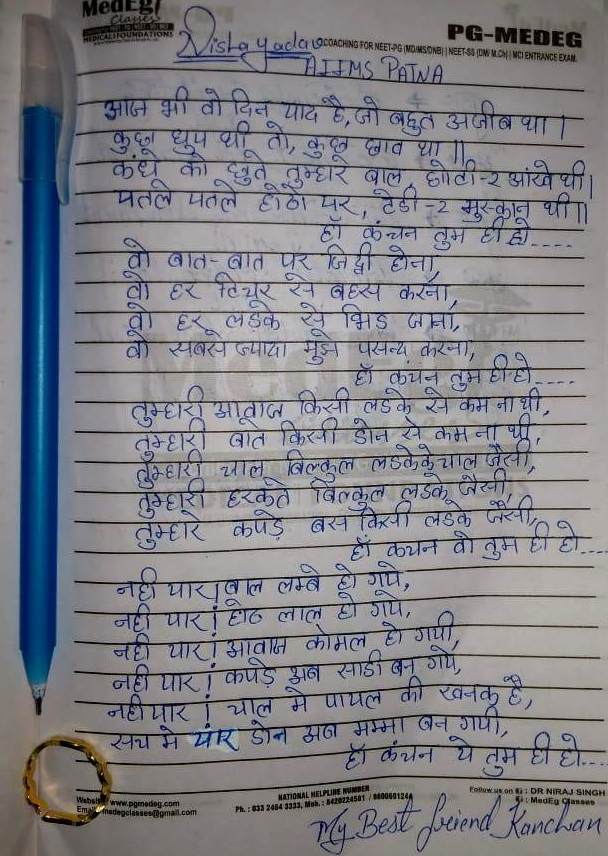 MedEg
Classes
MEDICAL FOUNDATIONS
PG-MEDEG
COACHING FOR NEET-PG (MD/MS/DNB) | NEET-SS (DM/ M.Ch) | MCI ENTRANCE EXAM.
Nisha yadav
AIIMS PATNA
आज भी वो दिन याद है, जो बहुत अजीब था।
कुछ धुप थी तो, कुछ छाव था॥
कंधे को छुते तुम्हारे बाल, छोटी-२ आंखे थी।
पतले पतले होठो पर, टेडी-२ मुस्कान थी॥
हाँ कंचन तुम ही हो....
वो बात-बात पर जिद्दी होना,
वो हर टिचर से बहस करना,
वो हर लडके से भिड जाना,
वो सबसे ज्यादा मुझे पसन्द करना,
हाँ कंचन तुम ही हो....
तुम्हारी आवाज किसी लडके से कम ना थी,
तुम्हारी बात किसी डोन से कम ना थी,
तुम्हारी चाल बिल्कुल लडकेके चाल जैसी,
तुम्हारी हरकते बिल्कुल लडके जैसी,
तुम्हारे कपड़े बस किसी लडके जैसी,
हाँ कंचन वो तुम ही हो....
नही यार! बाल लम्बे हो गये,
नही यार! होठ लाल हो गये,
नही यार! आवाज कोमल हो गयी,
नही यार! कपड़े अब साडी बन गये,
नही यार! चाल मे पायल की खनक है,
सच मे यार डोन अब मम्मा बन गयी,
हाँ कंचन ये तुम ही हो....
Website: www.pgmedeg.com
Email: medegclasses@gmail.com
NATIONAL HELPLINE NUMBER
Ph. : 033 2464 3333, Mob. : 8420224581 /
Follow us on : DR NIRAJ SINGH
: MedEg Classes
My Best friend Kanchan